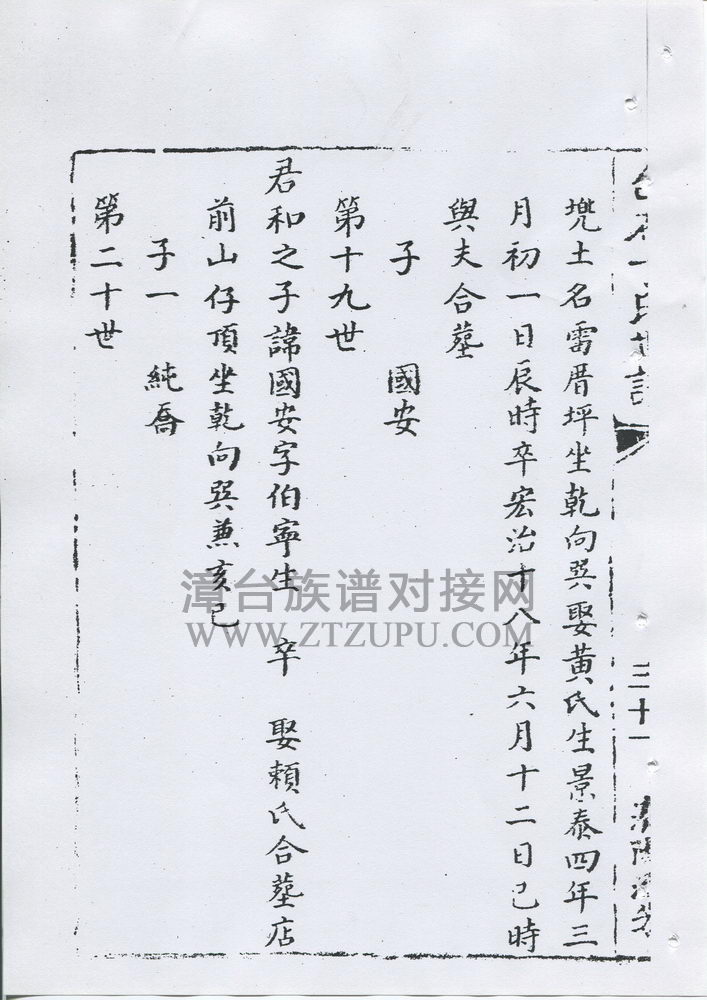 兠土名雷厝坪坐乾向巽娶黄氏生景泰四年三
月初一日辰時卒宏治十八年六月十二日巳時
與夫合墓
子 國安
第十九世
君和之子諱國安字伯寧生 卒 娶賴氏合墓店
前山仔頂坐乾向巽兼亥巳
子一 純喬
第二十世
三十一
漳台族谱对接网
WWW.ZTZUPU.COM